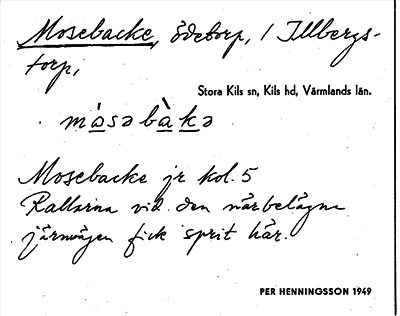 Mosebacke, ödetorp, / Illbergs-
torp,
Stora Kils sn, Kils hd, Värmlands län.
mosəbakə
Mosebacke jr kol. 5
Rallarna vid den närbelägna
järnvägen fick sprit här.
PER HENNINGSSON 1949